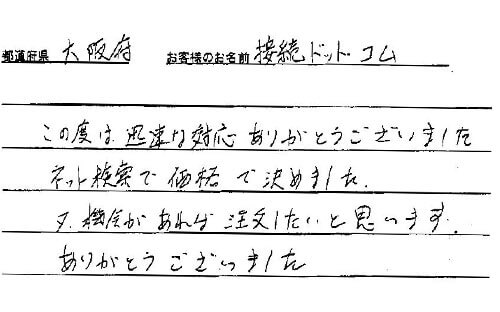 都道府県 大阪府 お客様のお名前 接続ドットコム
この度は迅速な対応ありがとうございました
ネット検索で価格で決めました.
又、機会があれば注文したいと思います.
ありがとうございました